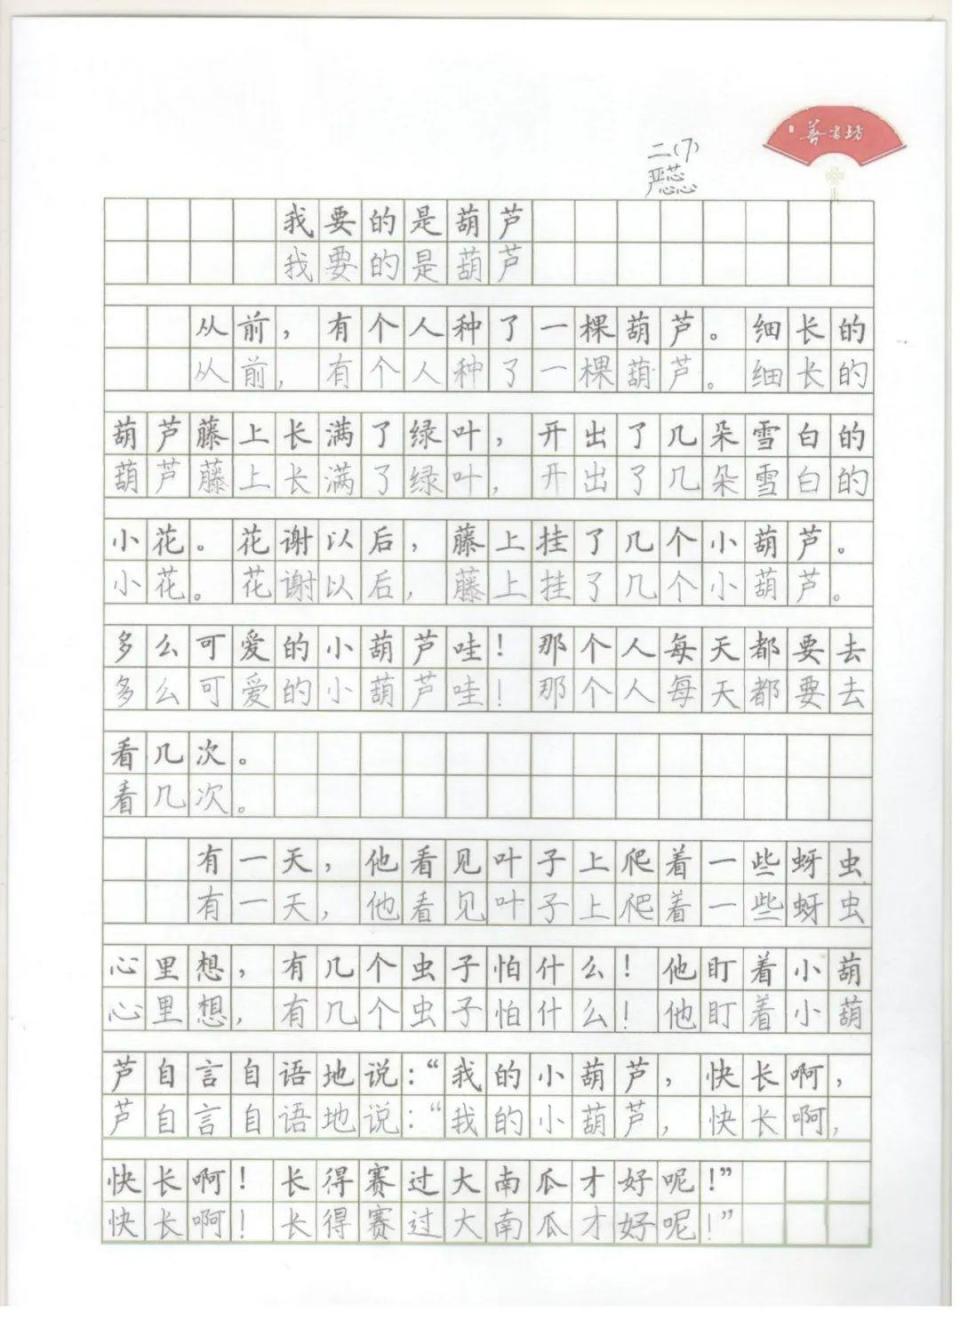 善书坊
二(7)
严蕊
我要的是葫芦
我要的是葫芦
从前，有个人种了一棵葫芦。细长的
从前，有个人种了一棵葫芦。细长的
葫芦藤上长满了绿叶，开出了几朵雪白的
葫芦藤上长满了绿叶，开出了几朵雪白的
小花。花谢以后，藤上挂了几个小葫芦。
小花。花谢以后，藤上挂了几个小葫芦。
多么可爱的小葫芦哇！那个人每天都要去
多么可爱的小葫芦哇！那个人每天都要去
看几次。
看几次。
有一天，他看见叶子上爬着一些蚜虫
有一天，他看见叶子上爬着一些蚜虫
心里想，有几个虫子怕什么！他盯着小葫
心里想，有几个虫子怕什么！他盯着小葫
芦自言自语地说：“我的小葫芦，快长啊，
芦自言自语地说：“我的小葫芦，快长啊，
快长啊！长得赛过大南瓜才好呢！”
快长啊！长得赛过大南瓜才好呢！”